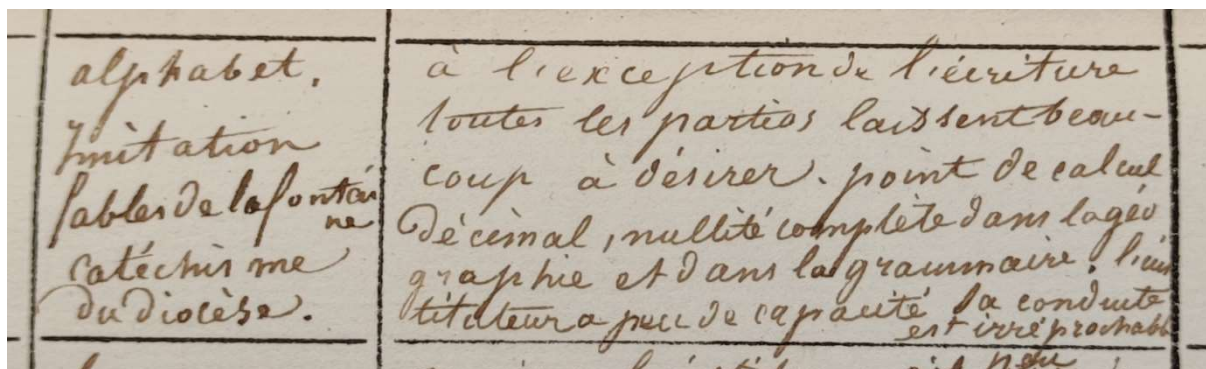 alphabet.
Imitation
fables de lafontai
ne
catéchisme
du diocèse.
à l'exception de l'écriture
toutes les parties laissent beau-
coup à désirer. point de calcul
décimal, nullité complète dans la géo
graphie et dans la grammaire. l'ins
tituteur a peu de capacité sa conduite
est irréprochable
peu